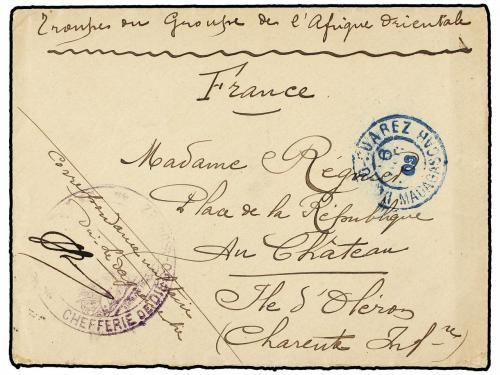 Troupes du Groupe de l'Afrique Orientale
France
Madame Régnier
Place de la République
Au Château
Ile d'Oléron
(Charente Infre)
Correspondance militaire
SUAREZ
MADAGASCAR
CHEFFERIE DE DIEGO